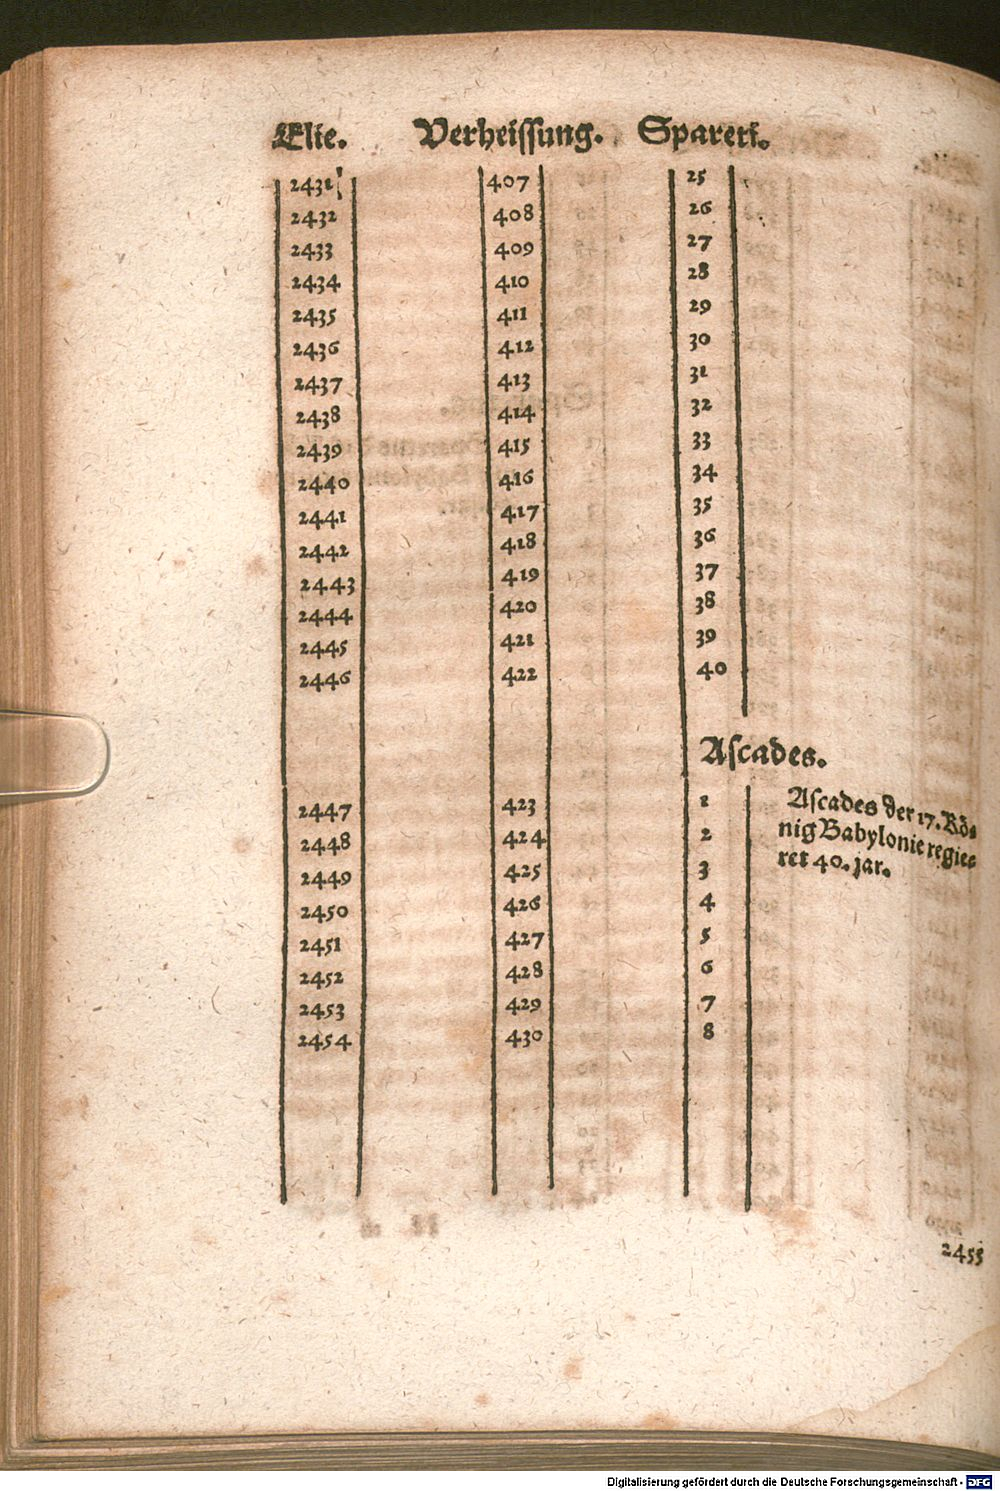 Elie. Verheissung. Spareti.
2431 407 25
2432 408 26
2433 409 27
2434 410 28
2435 411 29
2436 412 30
2437 413 31
2438 414 32
2439 415 33
2440 416 34
2441 417 35
2442 418 36
2443 419 37
2444 420 38
2445 421 39
2446 422 40
Ascades.
2447 423 1 Ascades der 17. Kö-
2448 424 2 nig Babylonie regie-
ret 40. jar.
2449 425 3
2450 426 4
2451 427 5
2452 428 6
2453 429 7
2454 430 8
2455
Digitalisierung gefördert durch die Deutsche Forschungsgemeinschaft - DFG